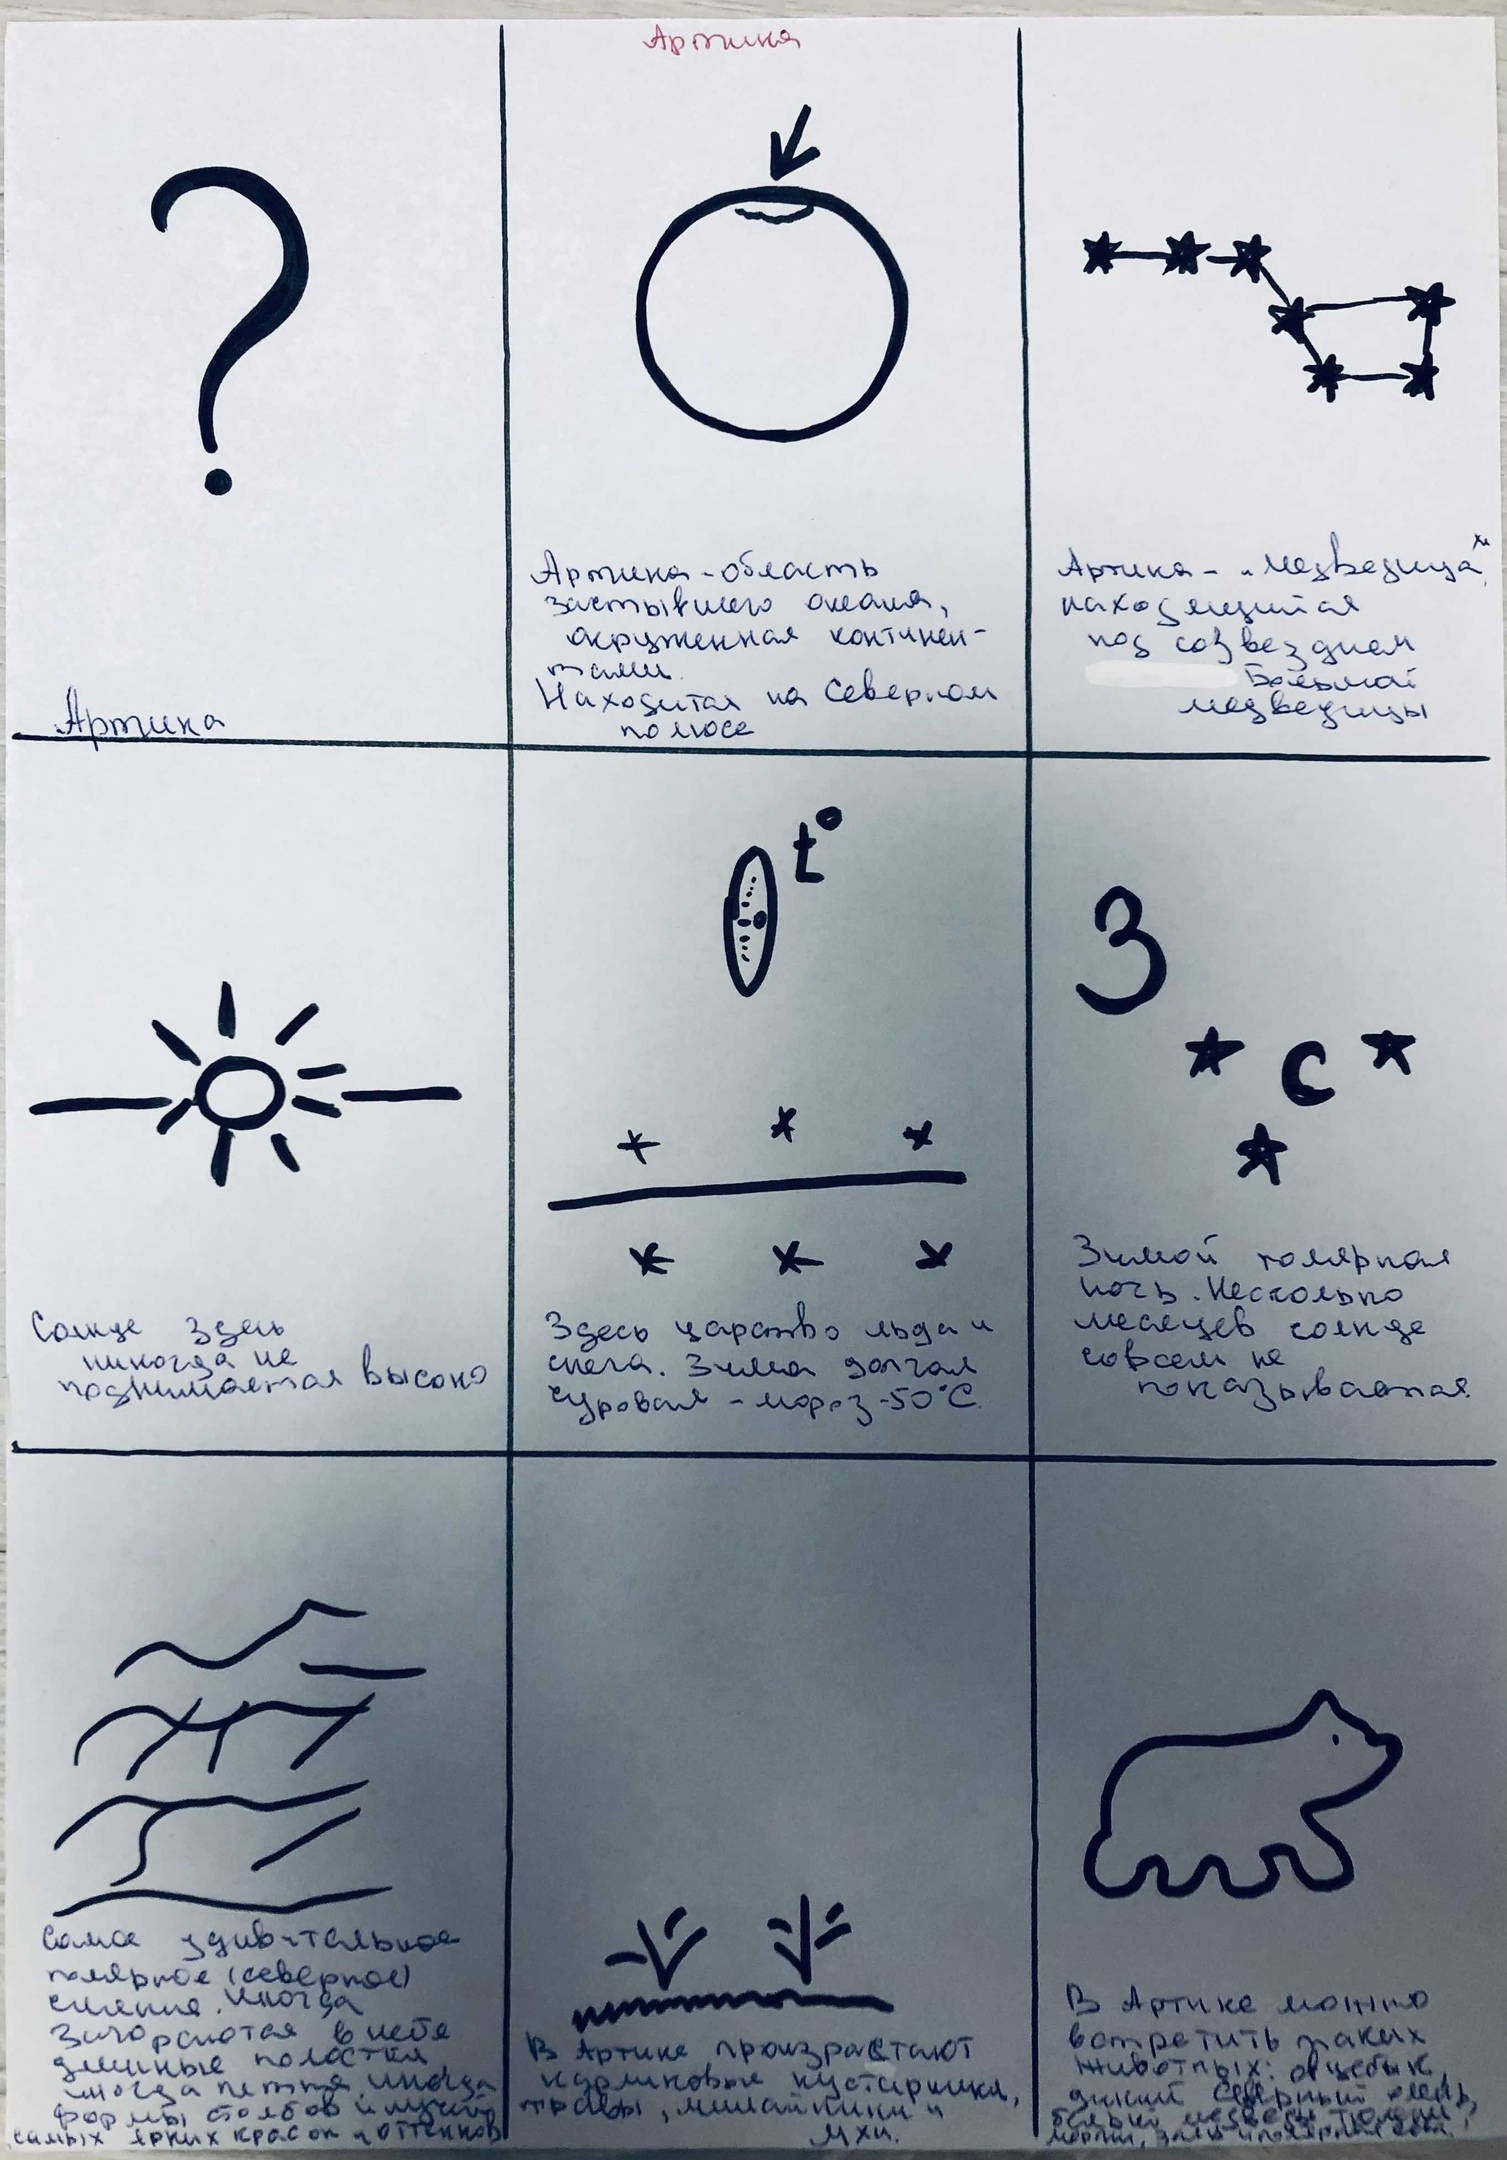 Артика
Артика
Артика - область
застывшего океана,
окруженная континен-
тами.
Находится на Северном
полюсе
Артика - "медведица",
находящийся
под созвездием
Большой
медведицы
Солнце здесь
никогда не
поднимается высоко
t°
Здесь царство льда и
снега. Зима долгая
суровая - мороз -50°С.
З
с
Зимой полярная
ночь. Несколько
месяцев солнце
совсем не
показывается.
Самое удивительное
полярное (северное)
сияние. Иногда
Загораются в небе
длинные полостки
иногда петля, иногда
формы столбов и лучей
самых ярких красок и оттенков
В Артике произрастают
карликовые кустарники,
травы, лишайники и
мхи.
В Артике можно
встретить таких
животных: овцебык,
дикий северный олень,
белый медведь, тюлени,
моржи,